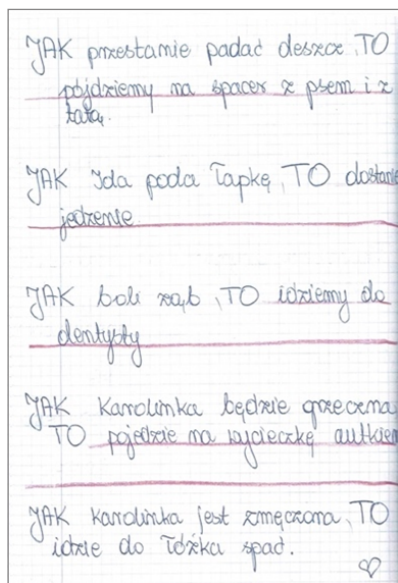 JAK przestanie padać deszcz, TO
pójdziemy na spacer z psem i z
tatą.
JAK Ida poda łapkę, TO dostanie
jedzenie.
JAK boli ząb, TO idziemy do
dentysty
JAK Karolinka będzie grzeczna,
TO pojedzie na wycieczkę autkiem
JAK Karolinka jest zmęczona, TO
idzie do łóżka spać.